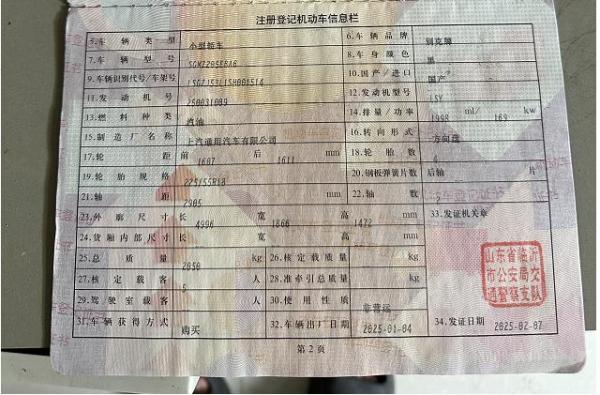 注册登记机动车信息栏
5.车辆类型 小型轿车 6.车辆品牌 别克牌
7.车辆型号 8.车身颜色 黑
9.车辆识别代号/车架号 10.国产/进口 国产
11.发动机号 250031009 12.发动机型号 LSY
13.燃料种类 汽油 14.排量/功率 1998 ml/ 169 kw
15.制造厂名称 上汽通用汽车有限公司 16.转向形式 方向盘
17.轮距 前 1607 后 1611 mm 18.轮胎数 4
19.轮胎规格 20.钢板弹簧片数 后轴 片
21.轴距 2905 mm 22.轴数 2
23.外廓尺寸 长 4996 宽 1866 高 1472 mm 33.发证机关章
24.货厢内部尺寸 长 宽 高 mm
25.总质量 2050 kg 26.核定载质量 kg
27.核定载客 5 人 28.准牵引总质量 kg
29.驾驶室载客 人 30.使用性质 非营运
31.车辆获得方式 购买 32.车辆出厂日期 2025-01-04 34.发证日期 2025-02-07
山东省临沂
市公安局交
通警察支队
第2页